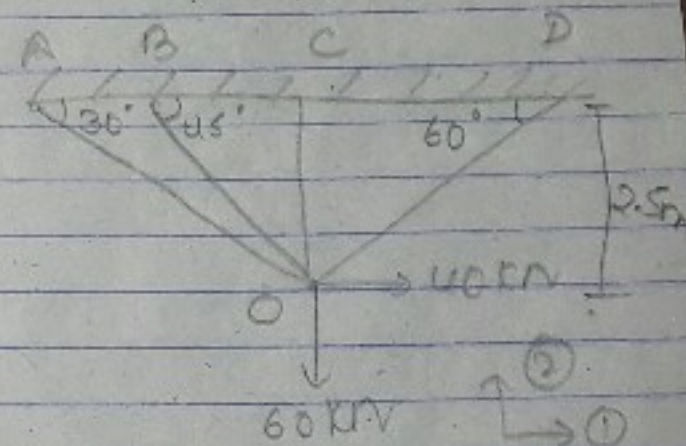 A B C D
30° 45° 60°
2.5m
O 40KN
60KN
②
①